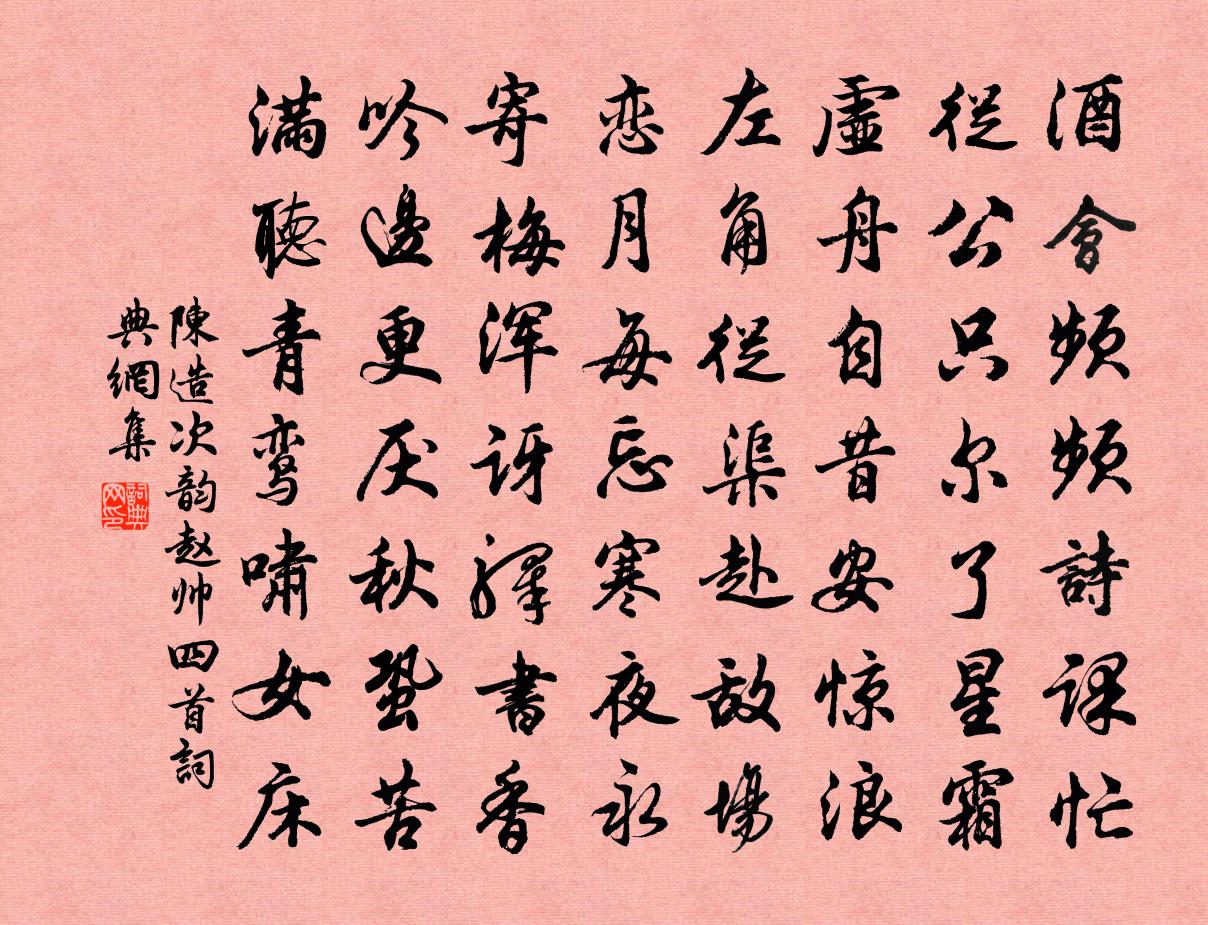 酒會頻頻詩課忙
從公只尔了星霜
虛舟自昔安惊浪
左角從渠赴敌場
恋月每忘寒夜永
寄梅浑讶驛書香
吟邊更厌秋蛩苦
满聽青鸾嘯女床
陳造次韵赵帅四首詞
典網集
詞典
网印